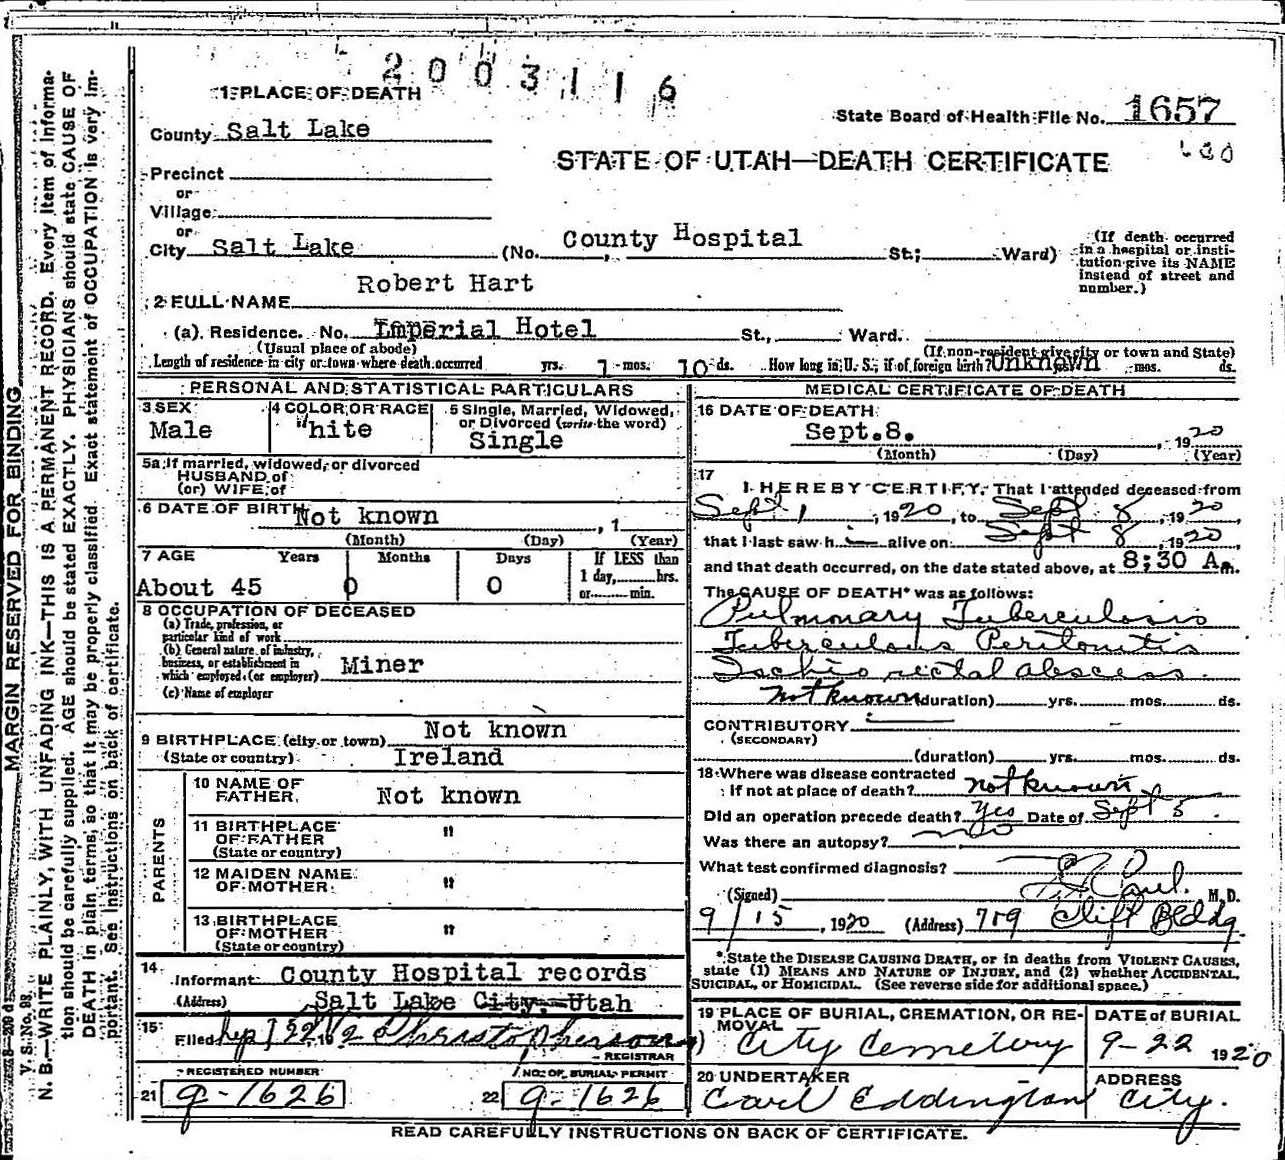 2003116
1 PLACE OF DEATH
State Board of Health File No. 1657
County Salt Lake
STATE OF UTAH—DEATH CERTIFICATE
Precinct
or
Village
or
City Salt Lake (No. County Hospital St; Ward)
(If death occurred in a hospital or institution give its NAME instead of street and number.)
2 FULL NAME Robert Hart
(a) Residence. No. Imperial Hotel St., Ward.
(Usual place of abode) (If non-resident give city or town and State)
Length of residence in city or town where death occurred yrs. 1 mos. 10 ds. How long in U. S., if of foreign birth? Unknown mos. ds.
PERSONAL AND STATISTICAL PARTICULARS
3 SEX Male
4 COLOR OR RACE White
5 Single, Married, Widowed, or Divorced (write the word) Single
5a If married, widowed, or divorced
HUSBAND of
(or) WIFE of
6 DATE OF BIRTH Not known , 1
(Month) (Day) (Year)
7 AGE Years Months Days If LESS than
1 day, hrs.
or min.
About 45 0 0
8 OCCUPATION OF DECEASED
(a) Trade, profession, or
particular kind of work
(b) General nature of industry,
business, or establishment in
which employed (or employer) Miner
(c) Name of employer
9 BIRTHPLACE (city or town) Not known
(State or country) Ireland
PARENTS
10 NAME OF FATHER Not known
11 BIRTHPLACE OF FATHER (State or country) "
12 MAIDEN NAME OF MOTHER "
13 BIRTHPLACE OF MOTHER (State or country) "
14 Informant County Hospital records
(Address) Salt Lake City, Utah
15 Filed Christopherson
REGISTRAR
REGISTERED NUMBER
21 9-1626
NO. OF BURIAL PERMIT
22 9-1626
MEDICAL CERTIFICATE OF DEATH
16 DATE OF DEATH
Sept.8. , 1920
(Month) (Day) (Year)
17 I HEREBY CERTIFY, That I attended deceased from
Sept 1 , 1920, to Sept 8 , 1920,
that I last saw h alive on Sept 8 , 1920,
and that death occurred, on the date stated above, at 8:30 A m.
The CAUSE OF DEATH* was as follows:
Pulmonary Tuberculosis
Tuberculous Peritonitis
Ischio rectal abscess
not known (duration) yrs. mos. ds.
CONTRIBUTORY
(SECONDARY)
(duration) yrs. mos. ds.
18 Where was disease contracted
If not at place of death? not known
Did an operation precede death? yes Date of Sept 5
Was there an autopsy? no
What test confirmed diagnosis?
(Signed) M. D.
9/15 , 1920 (Address) 719 Clift Bldg.
* State the DISEASE CAUSING DEATH, or in deaths from VIOLENT CAUSES,
state (1) MEANS AND NATURE OF INJURY, and (2) whether ACCIDENTAL,
SUICIDAL, or HOMICIDAL. (See reverse side for additional space.)
19 PLACE OF BURIAL, CREMATION, OR REMOVAL
City Cemetery
DATE of BURIAL
9-22 1920
20 UNDERTAKER
Carl Eddington
ADDRESS
City.
READ CAREFULLY INSTRUCTIONS ON BACK OF CERTIFICATE.
MARGIN RESERVED FOR BINDING
V. S. No. 98
N. B.—WRITE PLAINLY, WITH UNFADING INK—THIS IS A PERMANENT RECORD. Every item of information should be carefully supplied. AGE should be stated EXACTLY. PHYSICIANS should state CAUSE OF DEATH in plain terms, so that it may be properly classified. Exact statement of OCCUPATION is very important. See instructions on back of certificate.